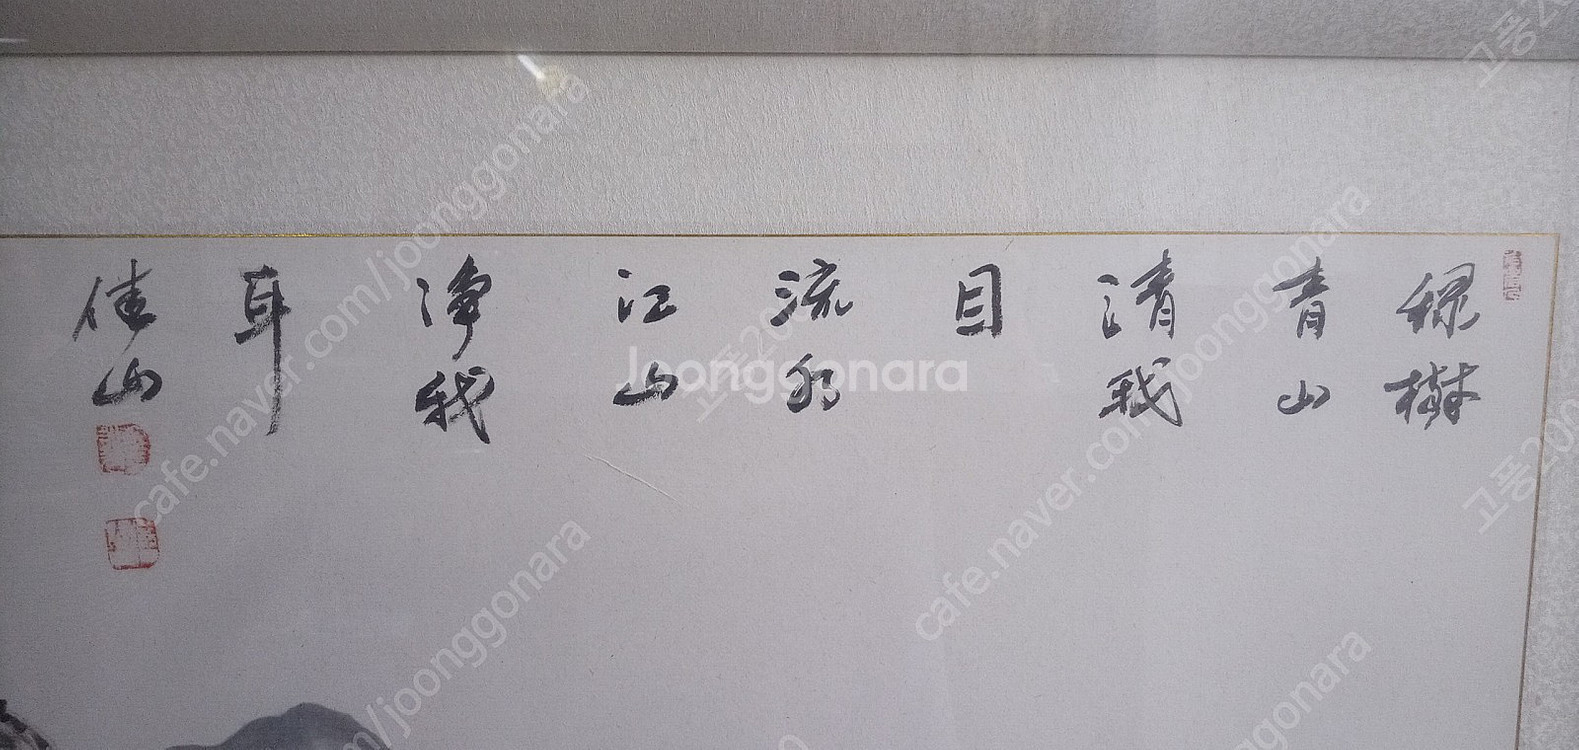 綠樹
青山
清我
目
流水
江山
淨我
耳
佳山
Joonggonara
cafe.naver.com/joonggonara
cafe.naver.com/joonggonara
cafe.naver.com/joonggonara
고풍20
고풍200